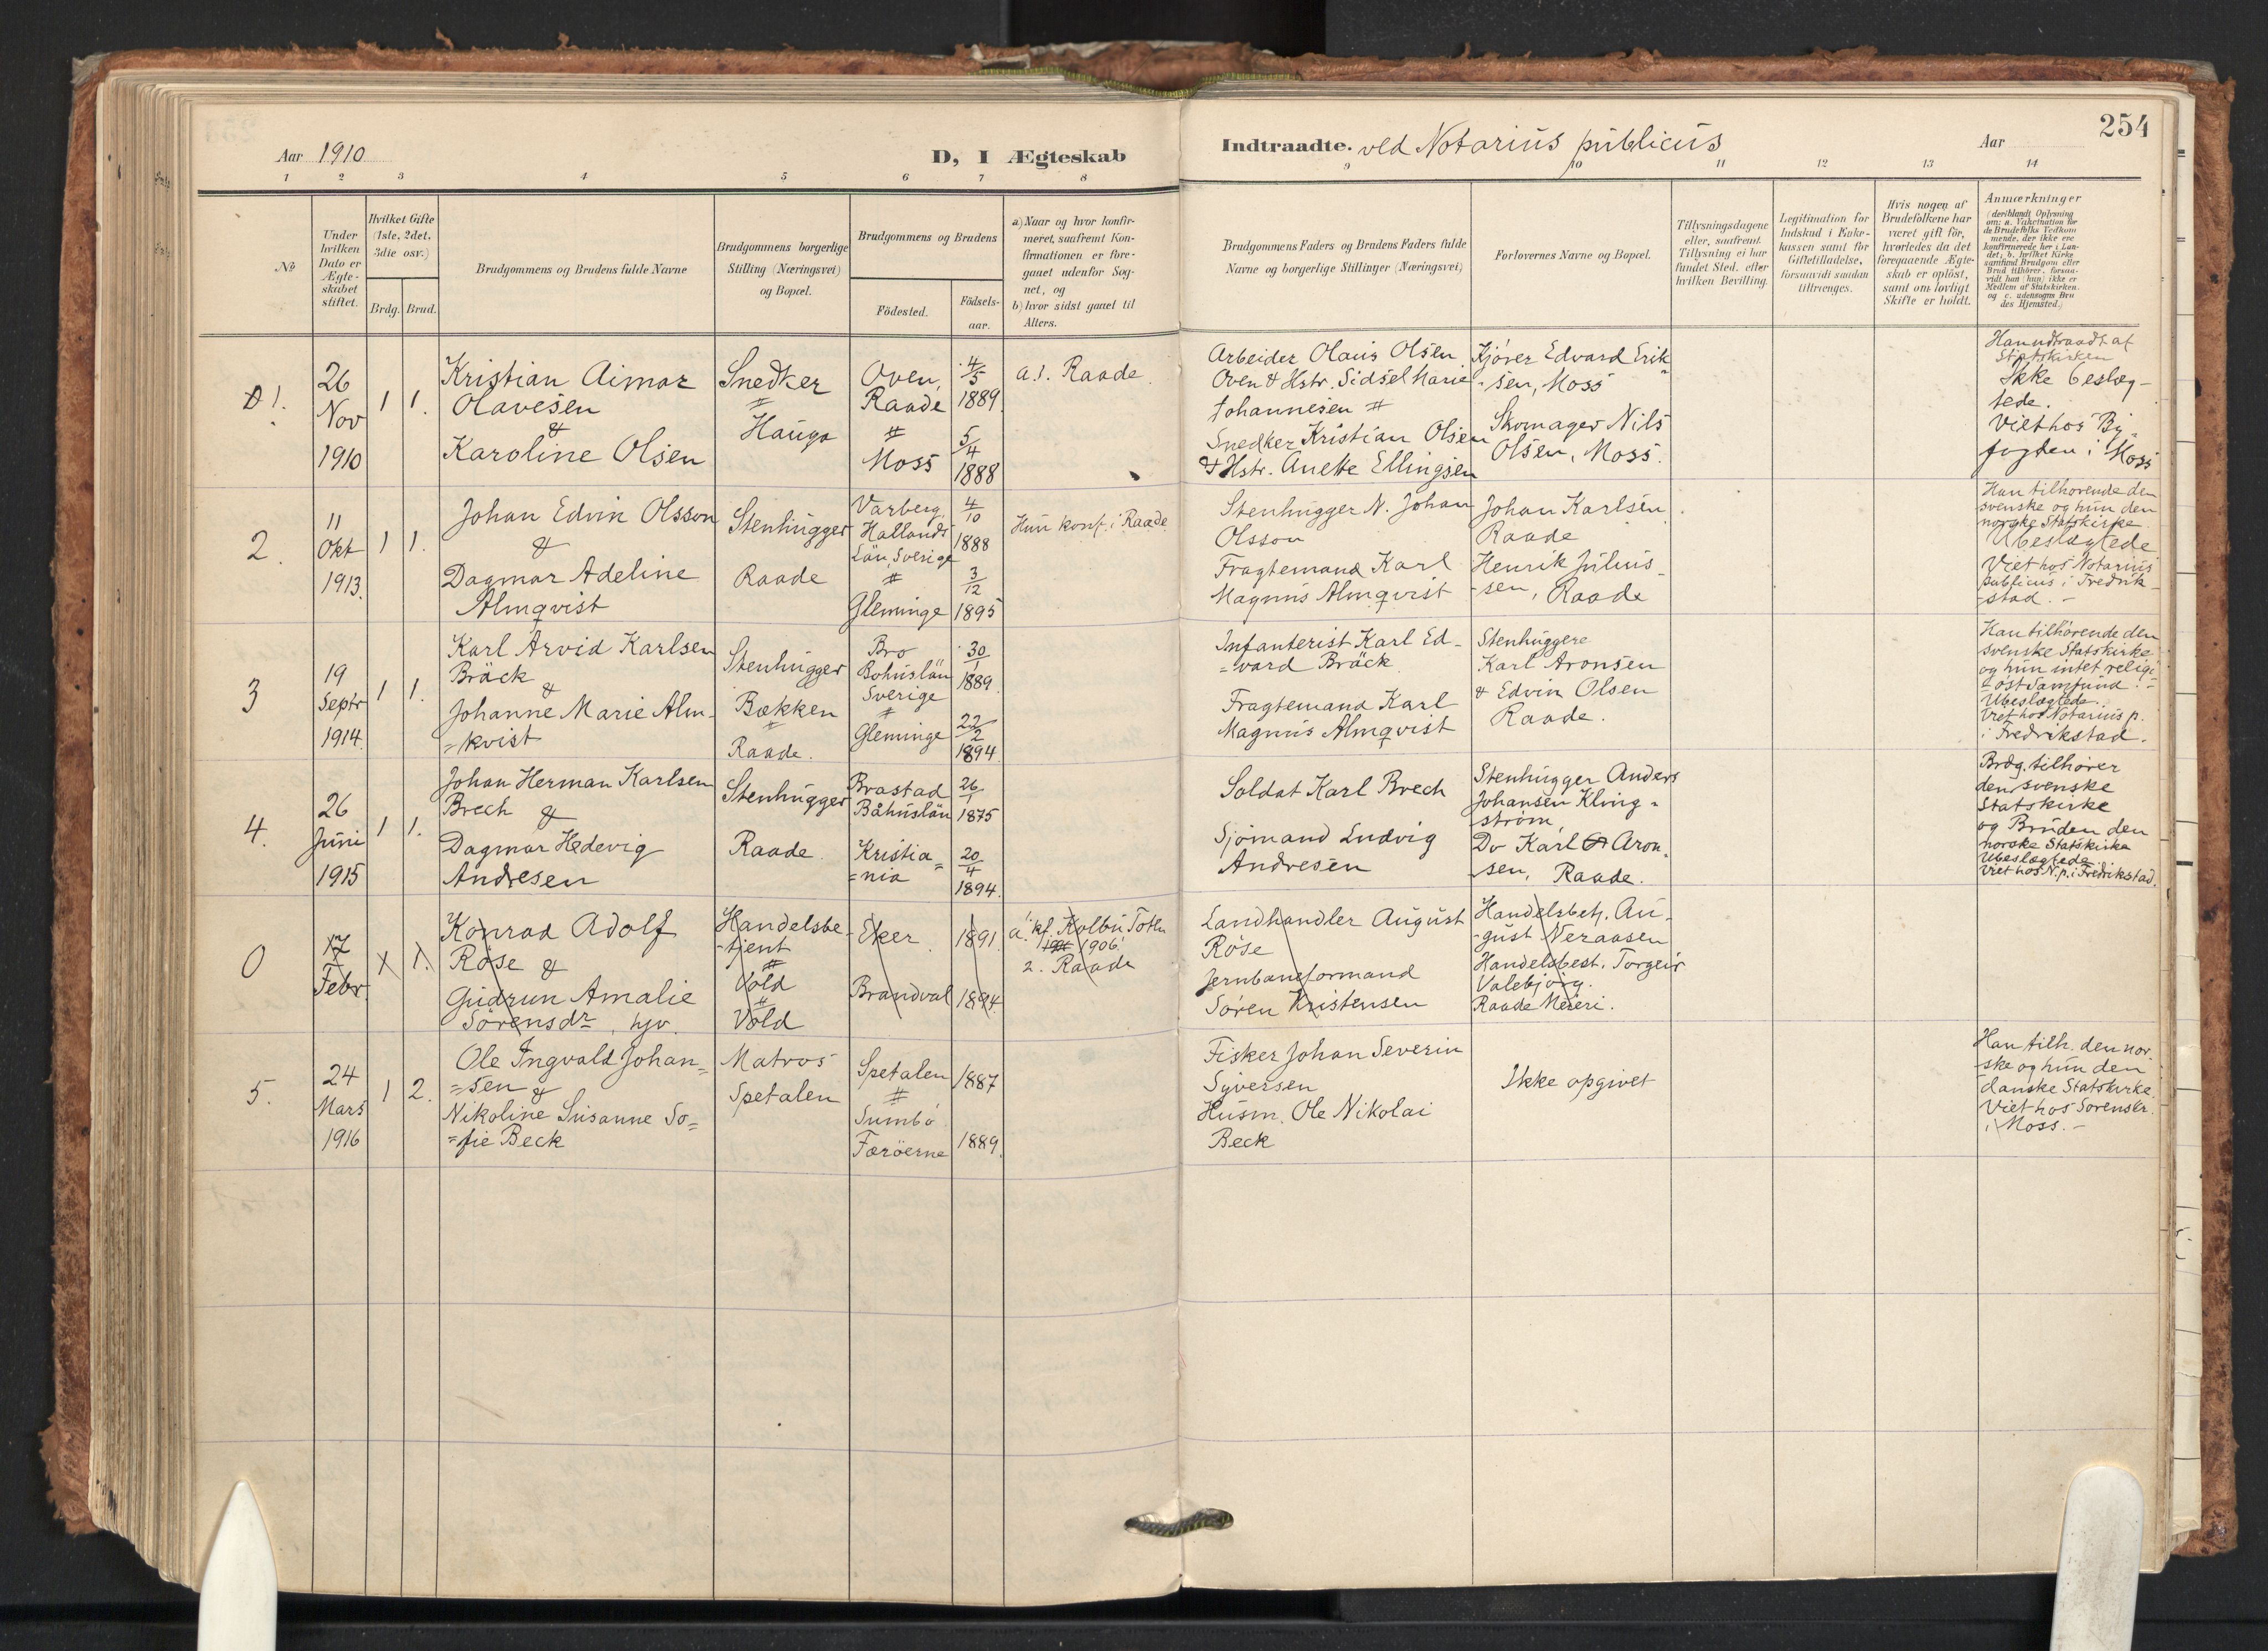 254
Aar 1910
D, I Ægteskab
Indtraadte. ved Notarius publicus
Aar
1 2 3 4 5 6 7 8
9 10 11 12 13 14
No
Under hvilken Dato er Ægteskabet stiftet.
Hvilket Gifte (1ste, 2det, 3die osv.)
Brdg. Brud.
Brudgommens og Brudens fulde Navne
Brudgommens borgerlige Stilling (Næringsvei) og Bopæl.
Brudgommens og Brudens
Födested.
Födsels-
aar.
a) Naar og hvor konfir-
meret, saafremt Kon-
firmationen er fore-
gaaet udenfor Sog-
net, og
b) hvor sidst gaaet til
Alters.
Brudgommens Faders og Brudens Faders fulde
Navne og borgerlige Stillinger (Næringsvei)
Forlovernes Navne og Bopæl.
Tillysningsdagene
eller, saafremt
Tillysning ei har
fundet Sted, efter
hvilken Bevilling.
Legitimation for
Indskud i Enke-
kassen samt for
Giftetilladelse,
forsaavidt saadan
tiltrænges.
Hvis nogen af
Brudefolkene har
været gift för,
hvorledes da det
foregaaende Ægte-
skab er oplöst,
samt om lovligt
Skifte er holdt.
Anmærkninger
(deriblandt Oplysning
om: a. Vakcination for
de Brudefolks Vedkom
mende, der ikke ere
konfirmerede her i Lan-
det; b. hvilket Kirke
samfund Brudgom eller
Brud tilhörer, forsaa-
vidt han (hun) ikke er
Medlem af Statskirken.
og c. udensogns Bru
des Hjemsted.)
1.
26
Nov
1910
1 1.
Kristian Aimar
Olavesen
&
Karoline Olsen
Snedker
"
Hauga
Oven,
Raade
"
Moss
4/5
1889.
5/4
1888
a.1. Raade.
Arbeider Olaus Olsen
Oven & Hstr. Sidsel Marie
Johannesen
Snedker Kristian Olsen
& Hstr. Anette Ellingsen
Kjører Edvard Erik-
-sen, Moss
Skomager Nils
Olsen, Moss.
Han udtraadt af
Statskirken
Ikke beslæg-
tede.
Viet hos By-
fogden i Moss
2.
11
Okt
1913.
1 1.
Johan Edvin Olsson
&
Dagmar Adeline
Almqvist
Stenhugger
Raade
Varberg,
Hallands
Län, Sverige
"
Gleminge
4/10
1888
3/12
1895
Hun konf. i Raade
Stenhugger N. Johan
Olsson
Fragtemand Karl
Magnus Almqvist
Johan Karlsen
Raade
Henrik Julius-
-sen, Raade
Han tilhørende den
svenske og hun den
norske Statskirke.
Ubeslægtede
Viet hos Notarius
publicus i Fredrik-
-stad. -
3
19
Septr
1914.
1 1.
Karl Arvid Karlsen
Bräck
&
Johanne Marie Alm-
=kvist
Stenhugger
Bækken
"
Raade.
Bro
Bohuslän
Sverige
"
Gleminge
30/1
1889.
22/2
1894
Infanterist Karl Ed-
=vard Bräck
Fragtemand Karl
Magnus Almqvist
Stenhuggere
Karl Aronsen
& Edvin Olsen
Raade.
Han tilhørende den
svenske Statskirke
og hun intet religi-
=øst Samfund. -
Ubeslægtede.
Viet hos Notarius p.
i Fredrikstad.
4.
26
Juni
1915
1 1.
Johan Herman Karlsen
Brech &
Dagmar Hedevig
Andresen
Stenhugger
Raade.
Brastad
Båhuslän
Kristia=
=nia
26/1
1875
20/4
1894.
Soldat Karl Brech
Sjömand Ludvig
Andresen
Stenhugger Anders
Johansen Kling-
ström
Do Karl Aron-
sen, Raade.
Brdg. tilhører
den svenske
Statskirke
og Bruden den
norske Statskirke
Ubeslægtede.
Viet hos N.p. i Fredrikstad.
0
17
Febr.
1 1.
Konrad Adolf
Røse &
Gudrun Amalie
Sørensdr, hjv.
Handelsbe-
-tjent
"
Vold
"
Vold
Eker.
Brandval
1891
1894.
a. 1. kf. Kolbu Toten
1906.
2. Raade
Landhandler August
Røse
Jernbaneformand
Søren Kristensen
Handelsbetj. Au-
-gust Neraasen
Handelsbest. Torgeir
Valebjørg.
Raade Meieri.
5.
24
Mars
1916
1 2.
Ole Ingvald Johan=
=sen &
Nikoline Susanne So=
=fie Beck
Matros
Spetalen
Spetalen
"
Sumbø
Færöerne
1887
1889.
Fisker Johan Severin
Syversen
Husm. Ole Nikolai
Beck
Ikke opgivet
Han tilh. den nor-
-ske og hun den
danske Statskirke.
Viet hos Sorenskr.
i Moss. -